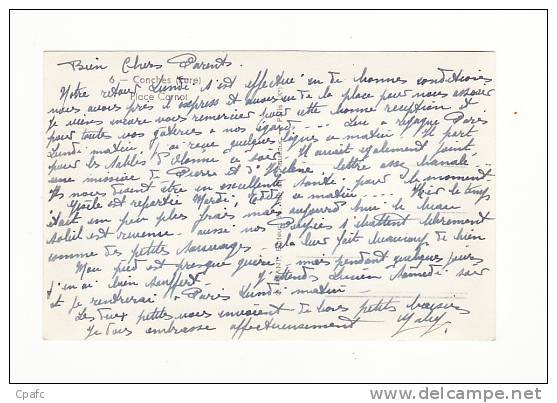 Bien Chers Parents.
6 — Conches (Eure)
Place Carnot
Notre retour Lundi s'est effectué en de bonnes conditions
nous avons pris l'express et avons eu de la place pour nous asseoir
Je viens encore vous remercier pour cette bonne réception et
pour toutes vos gâteries à nos égards... a regagné Paris
Lundi matin, j'ai reçu quelques lignes ce matin. Il part
pour les Sables d'Olonne ce soir. Il avait également joint
une missive de Pierre et d'Hélène. lettre assez banale...
Ils nous disent être en excellente santé pour le moment
est repartie Mardi, Teddy ce matin... Hier le temps
était un peu plus frais mais aujourd'hui le beau
soleil est revenu. aussi nos s'ébattent librement
comme des petits sauvages. cela leur fait beaucoup de bien
Mon pied est presque guéri. mais pendant quelques jours
j'en ai bien souffert. J'attends Lucien Samedi soir
et je rentrerai à Paris Lundi matin.
Les deux petits vous envoient de bons petits baisers
Je vous embrasse affectueusement
Cpafc
www.delcampe.net